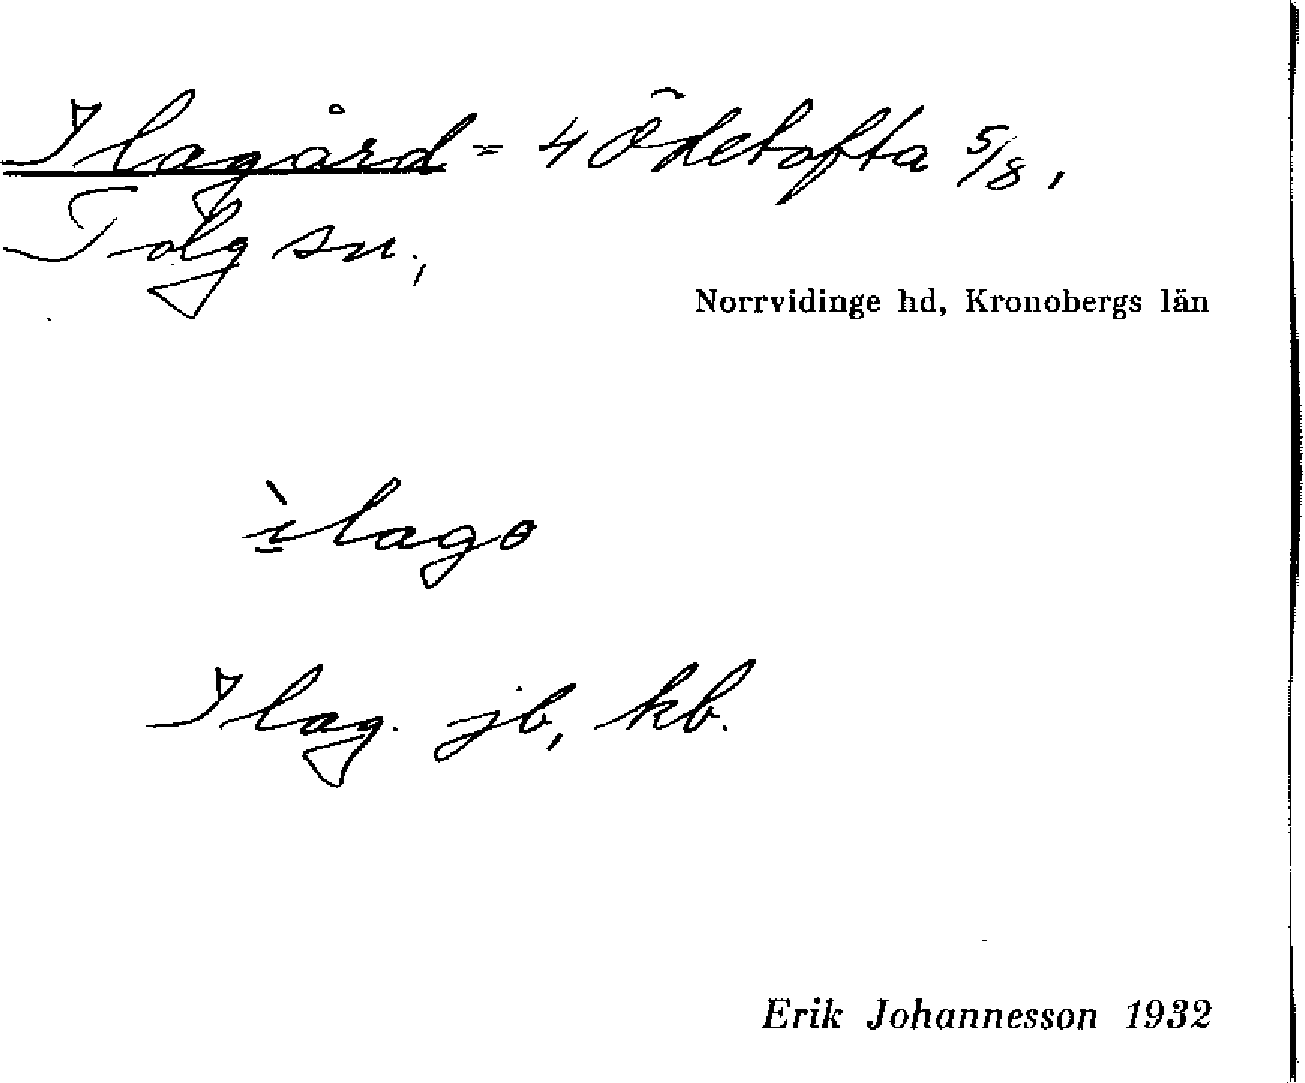 Ilagård = 4 Ödetofta 5/8,
Tolg sn.,
Norrvidinge hd, Kronobergs län
ìlago
Ilag. jb, kb.
Erik Johannesson 1932